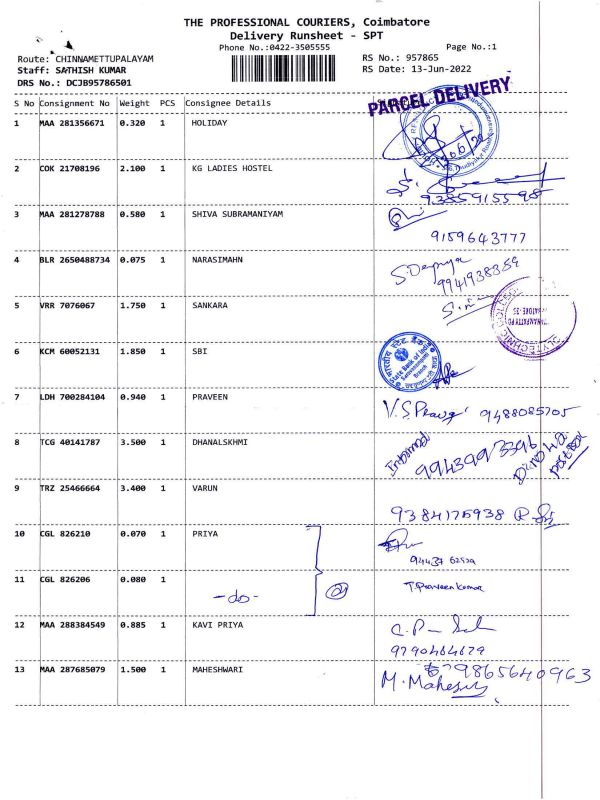 THE PROFESSIONAL COURIERS, Coimbatore
Delivery Runsheet - SPT
Phone No.:0422-3505555
Page No.:1
Route: CHINNAMETTUPALAYAM
RS No.: 957865
Staff: SATHISH KUMAR
RS Date: 13-Jun-2022
DRS No.: DCJB95786501
PARCEL DELIVERY
S No Consignment No Weight PCS Consignee Details
1 MAA 281356671 0.320 1 HOLIDAY
2 COK 21708196 2.100 1 KG LADIES HOSTEL
9385915598
3 MAA 281278788 0.580 1 SHIVA SUBRAMANIYAM
9159643777
4 BLR 2650488734 0.075 1 NARASIMAHN
9941938359
5 VRR 7076067 1.750 1 SANKARA
6 KCM 60052131 1.850 1 SBI
State Bank of India
7 LDH 700284104 0.940 1 PRAVEEN
9488085705
8 TCG 40141787 3.500 1 DHANALSKHMI
9943993396
9 TRZ 25466664 3.400 1 VARUN
9384175938
10 CGL 826210 0.070 1 PRIYA
11 CGL 826206 0.080 1
-do-
T. Praveen Kumar
12 MAA 288384549 0.885 1 KAVI PRIYA
9790464679
13 MAA 287685079 1.500 1 MAHESHWARI
9865640963